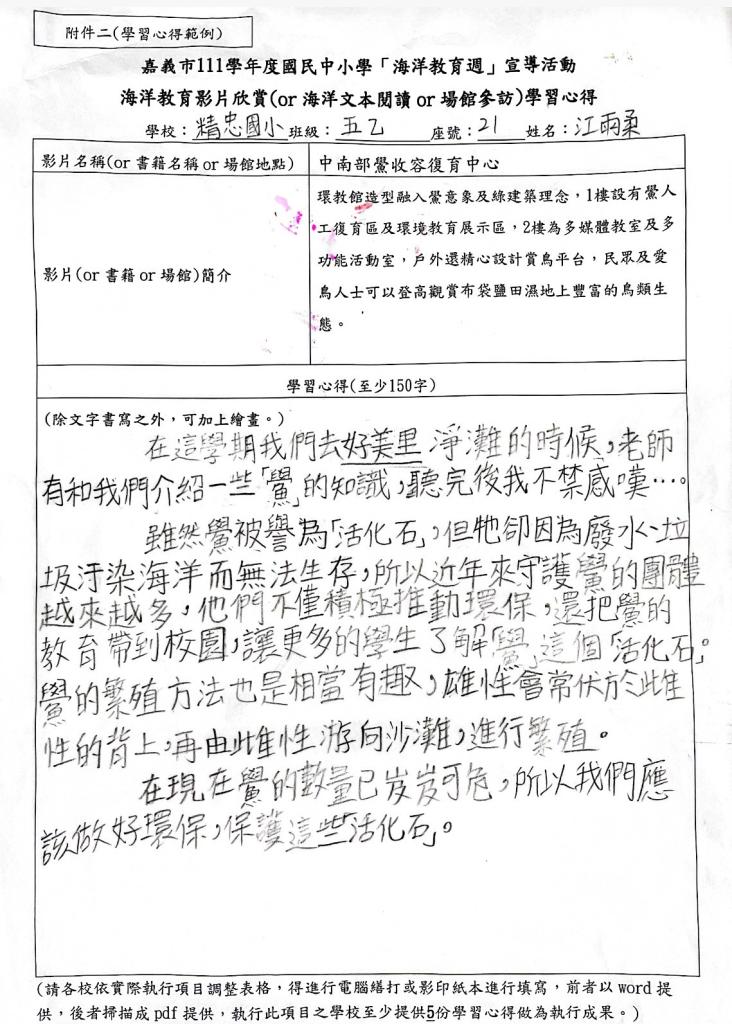 附件二(學習心得範例)
嘉義市111學年度國民中小學「海洋教育週」宣導活動
海洋教育影片欣賞(or 海洋文本閱讀 or 場館參訪)學習心得
學校：精忠國小 班級：五乙 座號：21 姓名：江雨柔
影片名稱(or 書籍名稱 or 場館地點) 中南部鱟收容復育中心
影片(or 書籍 or 場館)簡介
環教館造型融入鱟意象及綠建築理念，1樓設有鱟人
工復育區及環境教育展示區，2樓為多媒體教室及多
功能活動室，戶外還精心設計賞鳥平台，民眾及愛
鳥人士可以登高觀賞布袋鹽田濕地上豐富的鳥類生
態。
學習心得(至少150字)
(除文字書寫之外，可加上繪畫。)
在這學期我們去好美里淨灘的時候，老師
有和我們介紹一些「鱟」的知識，聽完後我不禁感嘆…。
雖然鱟被譽為「活化石」，但牠卻因為廢水、垃
圾汙染海洋而無法生存，所以近年來守護鱟的團體
越來越多，他們不僅積極推動環保，還把鱟的
教育帶到校園，讓更多的學生了解「鱟」這個「活化石」。
鱟的繁殖方法也是相當有趣，雄性會常伏於雌
性的背上，再由雌性游向沙灘，進行繁殖。
在現在鱟的數量已岌岌可危，所以我們應
該做好環保，保護這些「活化石」。
(請各校依實際執行項目調整表格，得進行電腦繕打或影印紙本進行填寫，前者以 word 提
供，後者掃描成 pdf 提供，執行此項目之學校至少提供5份學習心得做為執行成果。)